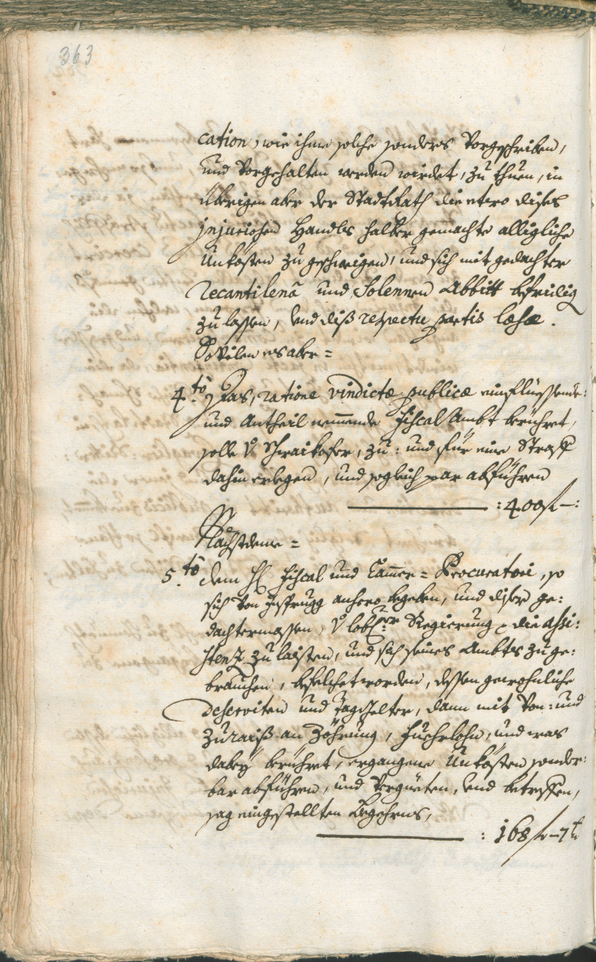 363
cation, wie ihme solche sonders Vorgschriben,
und Vorgehalten werden wirdet, zu thuen, in
übrigen aber der Stadt Rath die entero dises
jnjuriosen Handls halber gemachte alligliche
Unkosten zu geschweigen, und sich mit gedachter
recantilenâ und Solennen Abbitt befridig
zu lassen, und diß respectu partis læsæ.
Sovilen es aber =
4.to Das, ratione vindictæ publicæ einflüssende:
und Antheil nemmende Fiscal Ambt berühret,
solle V. Schraikofer, zu: und für eine Straff
dahin erlegen, und sogleich par abführen
: 400 f -:
Nachstdeme =
5.to dem H. Fiscal und Cammer = Procuratori, so
sich von Jnsprugg anhero begeben, und diser ge:
dachtermassen, V. lobl. Regierung die assi:
stenz zu laisten, und sich seines Ambts zu ge:
brauchen, befelchet worden, dessen gewohnliche
Deserviten und Taggelter, dann mit Von: und
Zurais an Zöhrung, Fuehrlohn, und was
dabey berühret, ergangene Unkosten sonder:
bar abführen, und Vergüeten, und betreffen,
sag eingestellten Begehrens,
: 168 f - 7